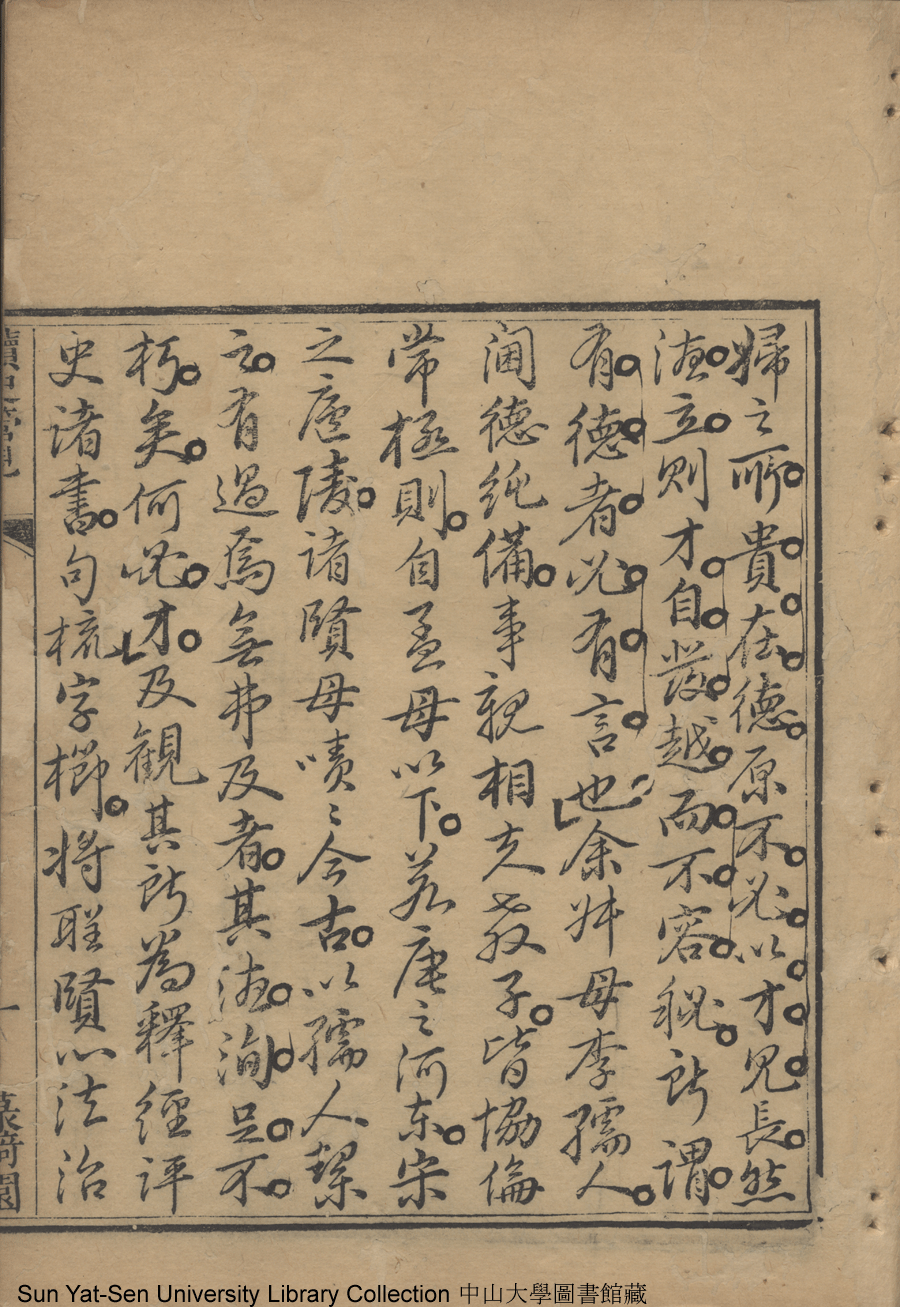 婦之所貴在德原不必以才見長然
德立則才自發越而不容秘所謂
有德者必有言也余妗母李孺人
閫德純備事親相夫教子皆協倫
常極則自孟母以下若唐之河東宋
之廬陵諸賢母嘖〻今古以孺人絜
之有過焉無弗及者其德洵足不
朽矣何必才及觀其所為釋經評
史諸書句梳字櫛將聖賢心法治
讀史管見
一
菉漪園
Sun Yat-Sen University Library Collection 中山大學圖書館藏